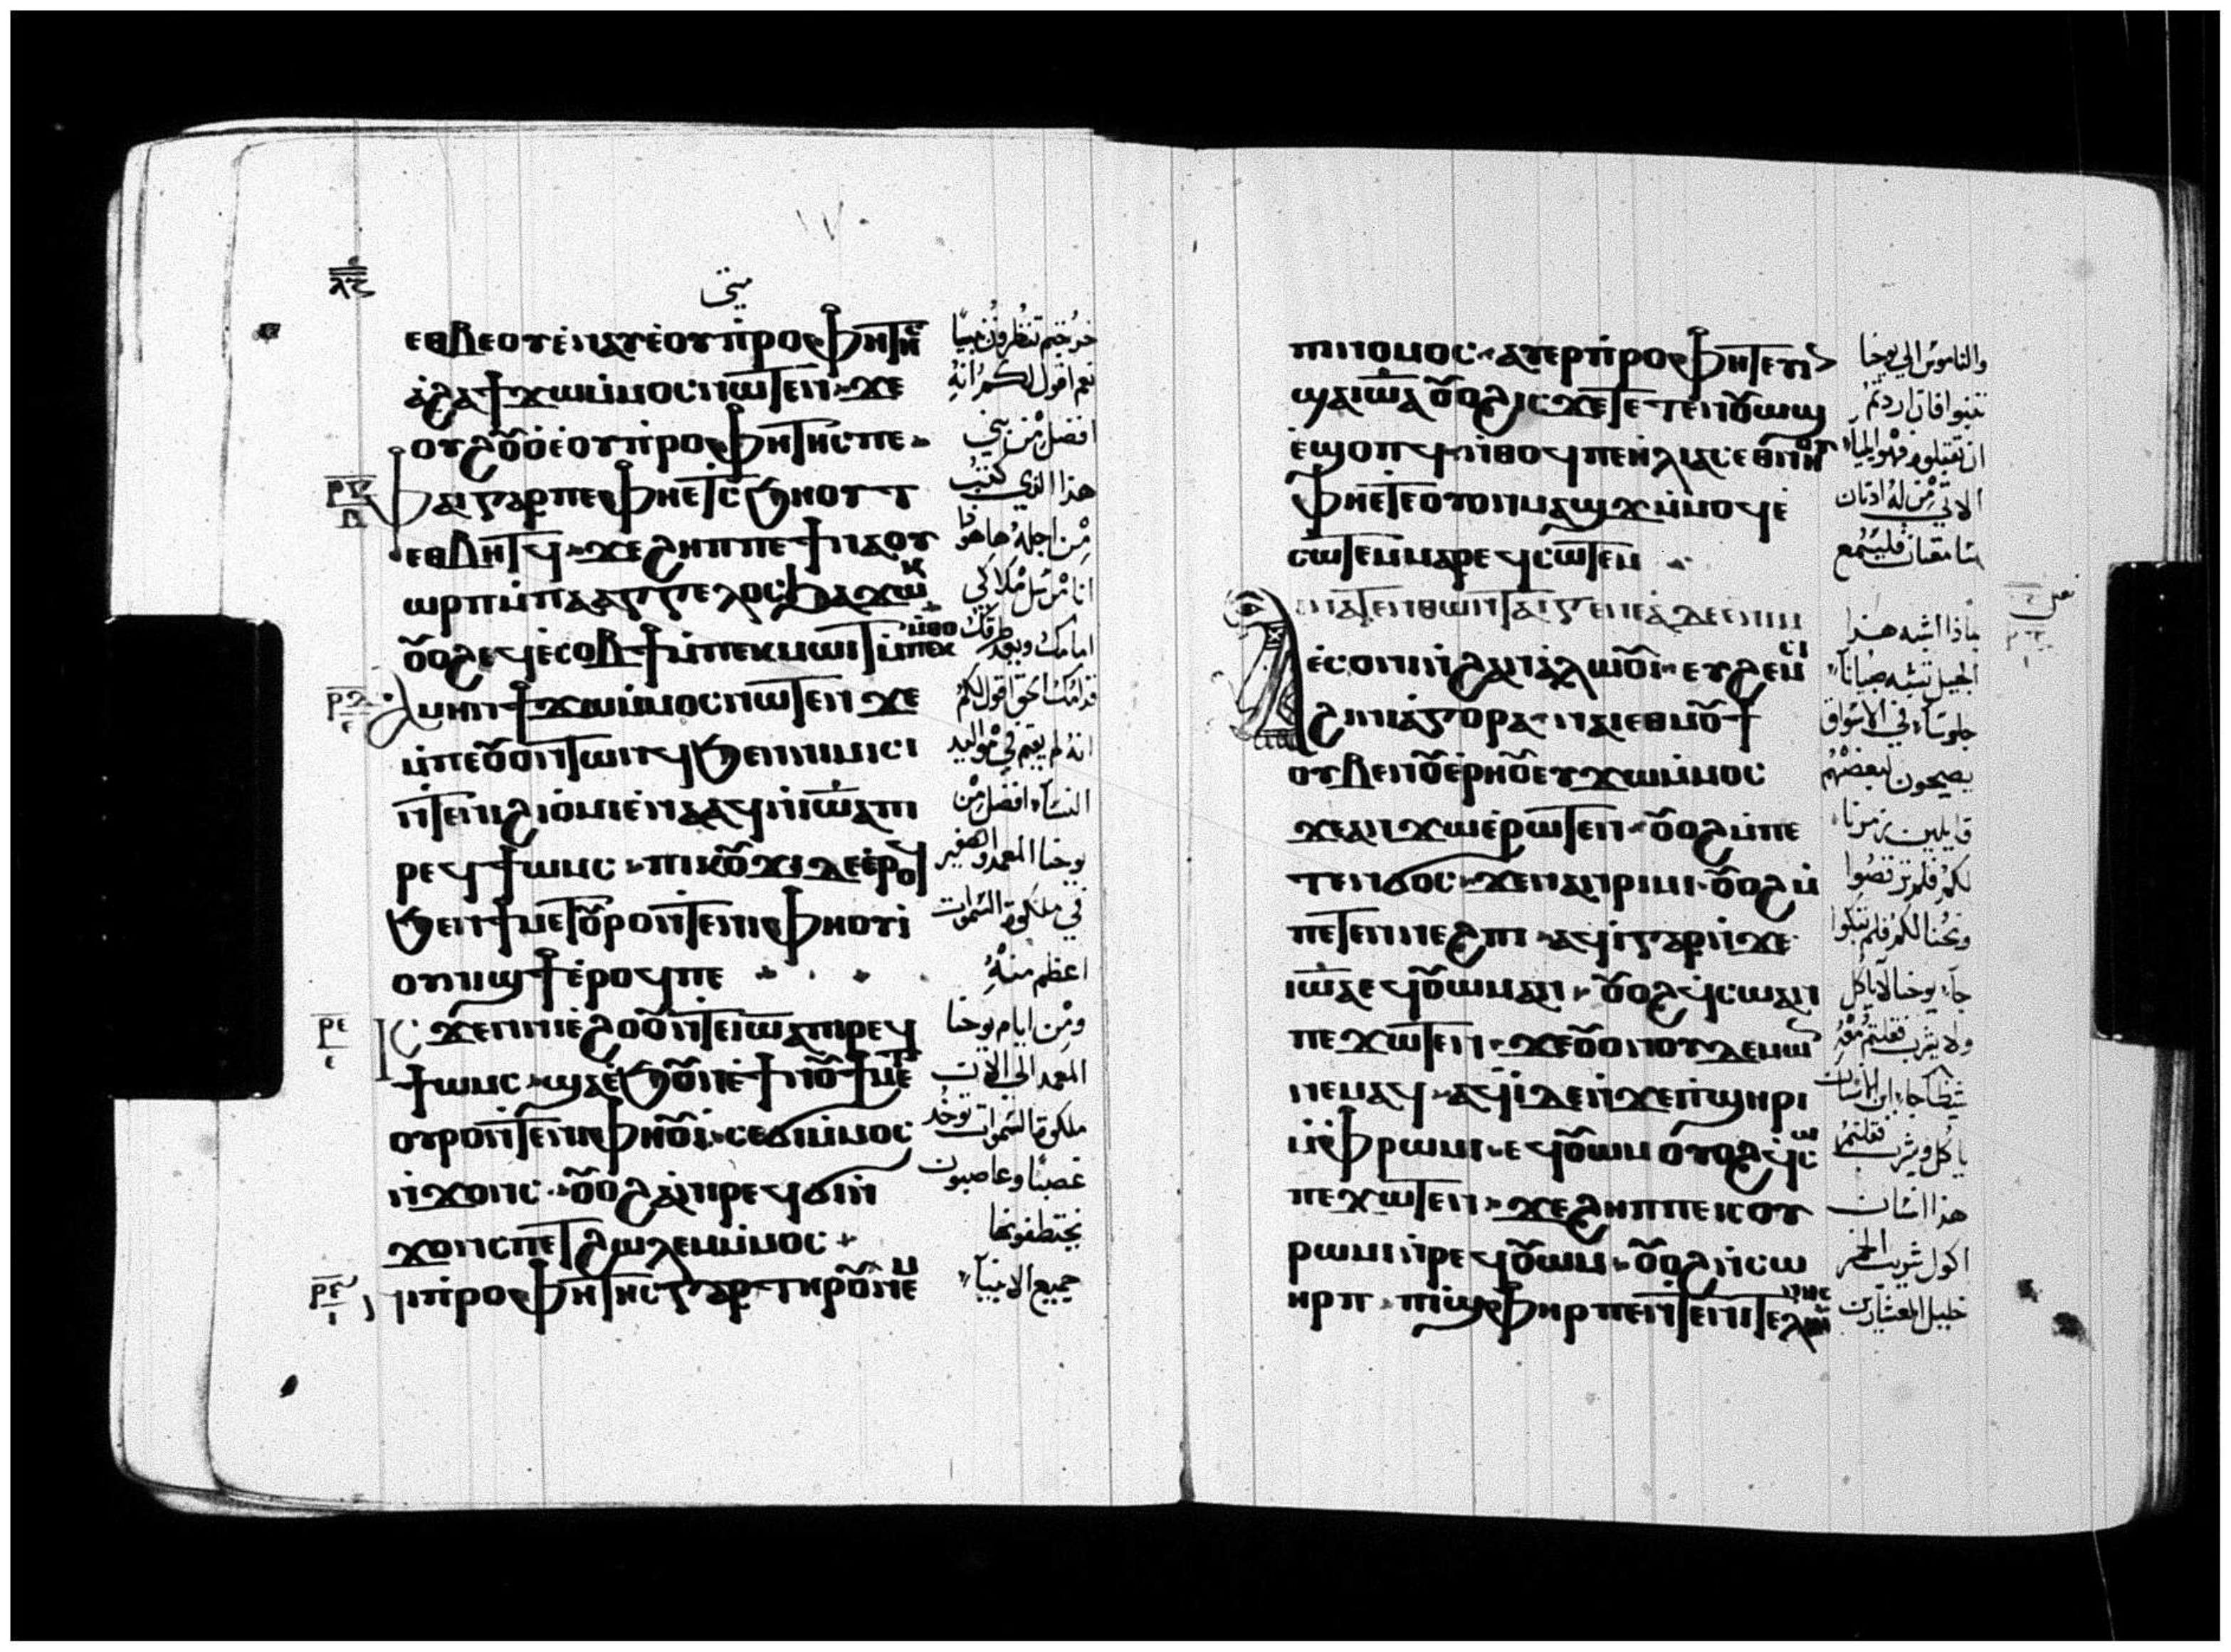 ⲗ︦ⲋ︦
متى
ⲉⲑⲃⲉⲟⲩⲉ̀ⲛⲁⲩⲉ̀ⲟⲩⲡ̀ⲣⲟⲫⲏⲧⲏⲥ
ⲁ̀ϩⲁϯϫⲱⲙ̀ⲙⲟⲥⲛⲱⲧⲉⲛ · ϫⲉ
ⲟⲩϩⲟ̅ⲟ̀ⲉ̀ⲟⲩⲡ̀ⲣⲟⲫⲏⲧⲏⲥⲡⲉ ·
ⲫⲁⲓⲅⲁⲣⲡⲉⲫⲏⲉⲧⲥϧⲏⲟⲩⲧ
ⲉⲑⲃⲏⲧϥ · ϫⲉϩⲏⲡⲡⲉϯⲛⲁⲟⲩ
ⲱⲣⲡⲙ̀ⲡⲁⲁⲅⲅⲉⲗⲟⲥϧⲁϫⲱⲕ
ⲟ̅ⲟϩⲉϥⲉ̀ⲥⲟⲃϯⲙ̀ⲡⲉⲕⲙⲱⲓⲧⲙ̀ⲡⲉⲕⲙ̀ⲑⲟ
ⲁⲙⲏⲛϯϫⲱⲙ̀ⲙⲟⲥⲛⲱⲧⲉⲛ ϫⲉ
ⲙ̀ⲡⲉⲟ̅ⲟⲛⲧⲱⲛϥϧⲉⲛⲛⲓⲙⲓⲥⲓ
ⲛ̀ⲧⲉⲛⲓϩⲓⲟ̀ⲙⲓⲉ̀ⲛⲁⲁϥⲛ̀ⲓⲱ̅ⲁⲡⲓ
ⲣⲉϥϯⲱⲙⲥ · ⲡⲓⲕⲟ̅ϫⲓⲇⲉⲉ̀ⲣⲟϥ
ϧⲉⲛϯⲙⲉⲧⲟ̅ⲣⲟⲛ̀ⲧⲉⲛⲓⲫⲏⲟⲩⲓ̀
ⲟⲩⲛⲓϣϯⲉ̀ⲣⲟϥⲡⲉ
ⲓⲥϫⲉⲛⲛⲓⲉ̀ϩⲟⲟ̅ⲛ̀ⲧⲉⲓⲱ̅ⲁⲡⲓⲣⲉϥ
ϯⲱⲙⲥ · ϣⲁⲉ̀ϧⲟ̅ⲛⲉ̀ϯⲛⲟ̅ϯⲙⲉⲧ
ⲟⲩⲣⲟⲛ̀ⲧⲉⲛⲓⲫⲏⲟ̅ⲓ̀ · ⲥⲉϭⲓⲙ̀ⲙⲟⲥ
ⲛ̀ϫⲟⲛⲥ · ⲟ̅ⲟϩϩⲁⲛⲣⲉϥϭⲓⲛ̀
ϫⲟⲛⲥⲡⲉⲧϩⲱⲗⲉⲙⲙ̀ⲙⲟⲥ ·
ⲛⲓⲡ̀ⲣⲟⲫⲏⲧⲏⲥⲅⲁⲣ ⲧⲏⲣⲟ̅ⲛⲉⲙ
خرجتم تنظرون نبيًا
نعم اقول لكم انه
افضل من نبي
هذا الذي كتب
من اجله هاهوذا
انا مرسل ملاكي
امامك ويعد طرقك
قدامك الحق اقول لكم
انه لم يقم في مواليد
النساء افضل من
يوحنا المعمد والصغير
في ملكوة السموات
اعظم منه
ومن ايام يوحنا
المعمد الي الان
ملكوة السموات توخذ
غصبًا وغاصبون
يختطفونها
جميع الانبيا
ⲡⲓⲛⲟⲙⲟⲥ · ⲁⲩⲉⲣⲡ̀ⲣⲟⲫⲏⲧⲉⲩⲓⲛ
ϣⲁⲓⲱ̅ⲁ ⲟ̅ⲟϩⲓⲥϫⲉⲧⲉⲧⲉⲛⲟ̅ⲱϣ
ⲉ̀ϣⲟⲡϥ ⲛ̀ⲑⲟϥⲡⲉⲏⲗⲓⲁⲥⲉⲑⲛⲏⲟⲩ
ⲫⲏⲉⲧⲉⲟⲩⲟⲛⲙⲁϣϫⲙ̀ⲙⲟϥⲉ̀
ⲥⲱⲧⲉⲙⲙⲁⲣⲉϥⲥⲱⲧⲉⲙ ·
ⲁⲓⲛⲁⲧⲉⲛⲑⲱⲛⲧⲁⲓⲅⲉⲛⲉⲁ̀ ⲇⲉⲉⲛⲓⲙ
ⲉⲥⲟⲛⲓⲛ̀ϩⲁⲛⲁ̀ⲗⲱⲟ̅ⲓ̀ · ⲉⲩϩⲉⲙⲥⲓ
ϩⲓⲛⲓⲁ̀ⲅⲟⲣⲁ · ⲛⲁⲓⲉⲑⲙⲟ̅ϯ
ⲟⲩⲃⲉⲛⲟ̅ⲉ̀ⲣⲏⲟ̅ⲉⲩϫⲱⲙ̀ⲙⲟⲥ
ϫⲉⲁⲛϫⲱⲉ̀ⲣⲱⲧⲉⲛ · ⲟ̅ⲟϩⲙ̀ⲡⲉ
ⲧⲉⲛϭⲟⲥ · ϫⲉⲛⲁⲛⲣⲓⲙⲓ · ⲟ̅ⲟϩⲙ̀
ⲡⲉⲧⲉⲛⲛⲉϩⲡⲓ · ⲁϥⲓ̀ⲅⲁⲣⲛ̀ϫⲉ
ⲓⲱ̅ⲁⲉϥⲟ̅ⲱⲙⲁⲛ · ⲟ̅ⲟϩϥⲥⲱⲁⲛ
ⲡⲉϫⲱⲧⲉⲛ · ϫⲉⲟ̅ⲟⲛⲟⲩⲇⲉⲙⲱⲛ
ⲛⲉⲙⲁϥ · ⲁϥⲓ̀ⲇⲉⲛ̀ϫⲉⲡ̀ϣⲏⲣⲓ
ⲙ̀ⲫⲣⲱⲙⲓ · ⲉϥⲟ̅ⲱⲙ ⲟⲩⲟϩϥⲥⲱ
ⲡⲉϫⲱⲧⲉⲛ · ϫⲉϩⲏⲡⲡⲉⲓⲥⲟⲩ
ⲣⲱⲙⲓⲛ̀ⲣⲉϥⲟ̅ⲱⲙ · ⲟ̅ⲟϩⲛ̀ⲥⲁⲩ
ⲏⲣⲡ · ⲡⲓϣⲫⲏⲣⲡⲉⲛ̀ⲧⲉⲛⲓⲧⲉⲗⲱⲛⲏⲥ
والناموس الي يوحنا
تنبوا فان اردتم
ان تقبلوه فهو ايليا
الاتي من له اذنان
سامعتان فليسمع
بماذا اشبه هذا
الجيل تشبه صبيانًا
جلوسًا في الاسواق
يصيحون لبعضهم
قايلين زمرنا
لكم فلم ترقصوا
ونحنا لكم فلم تبكوا
جاء يوحنا لا ياكل
ولا يشرب فقلتم معه
شيطانًا جاء ابن الانسان
ياكل ويشرب فقلتم
هذا انسان
اكول شريب الخمر
خليل العشارين